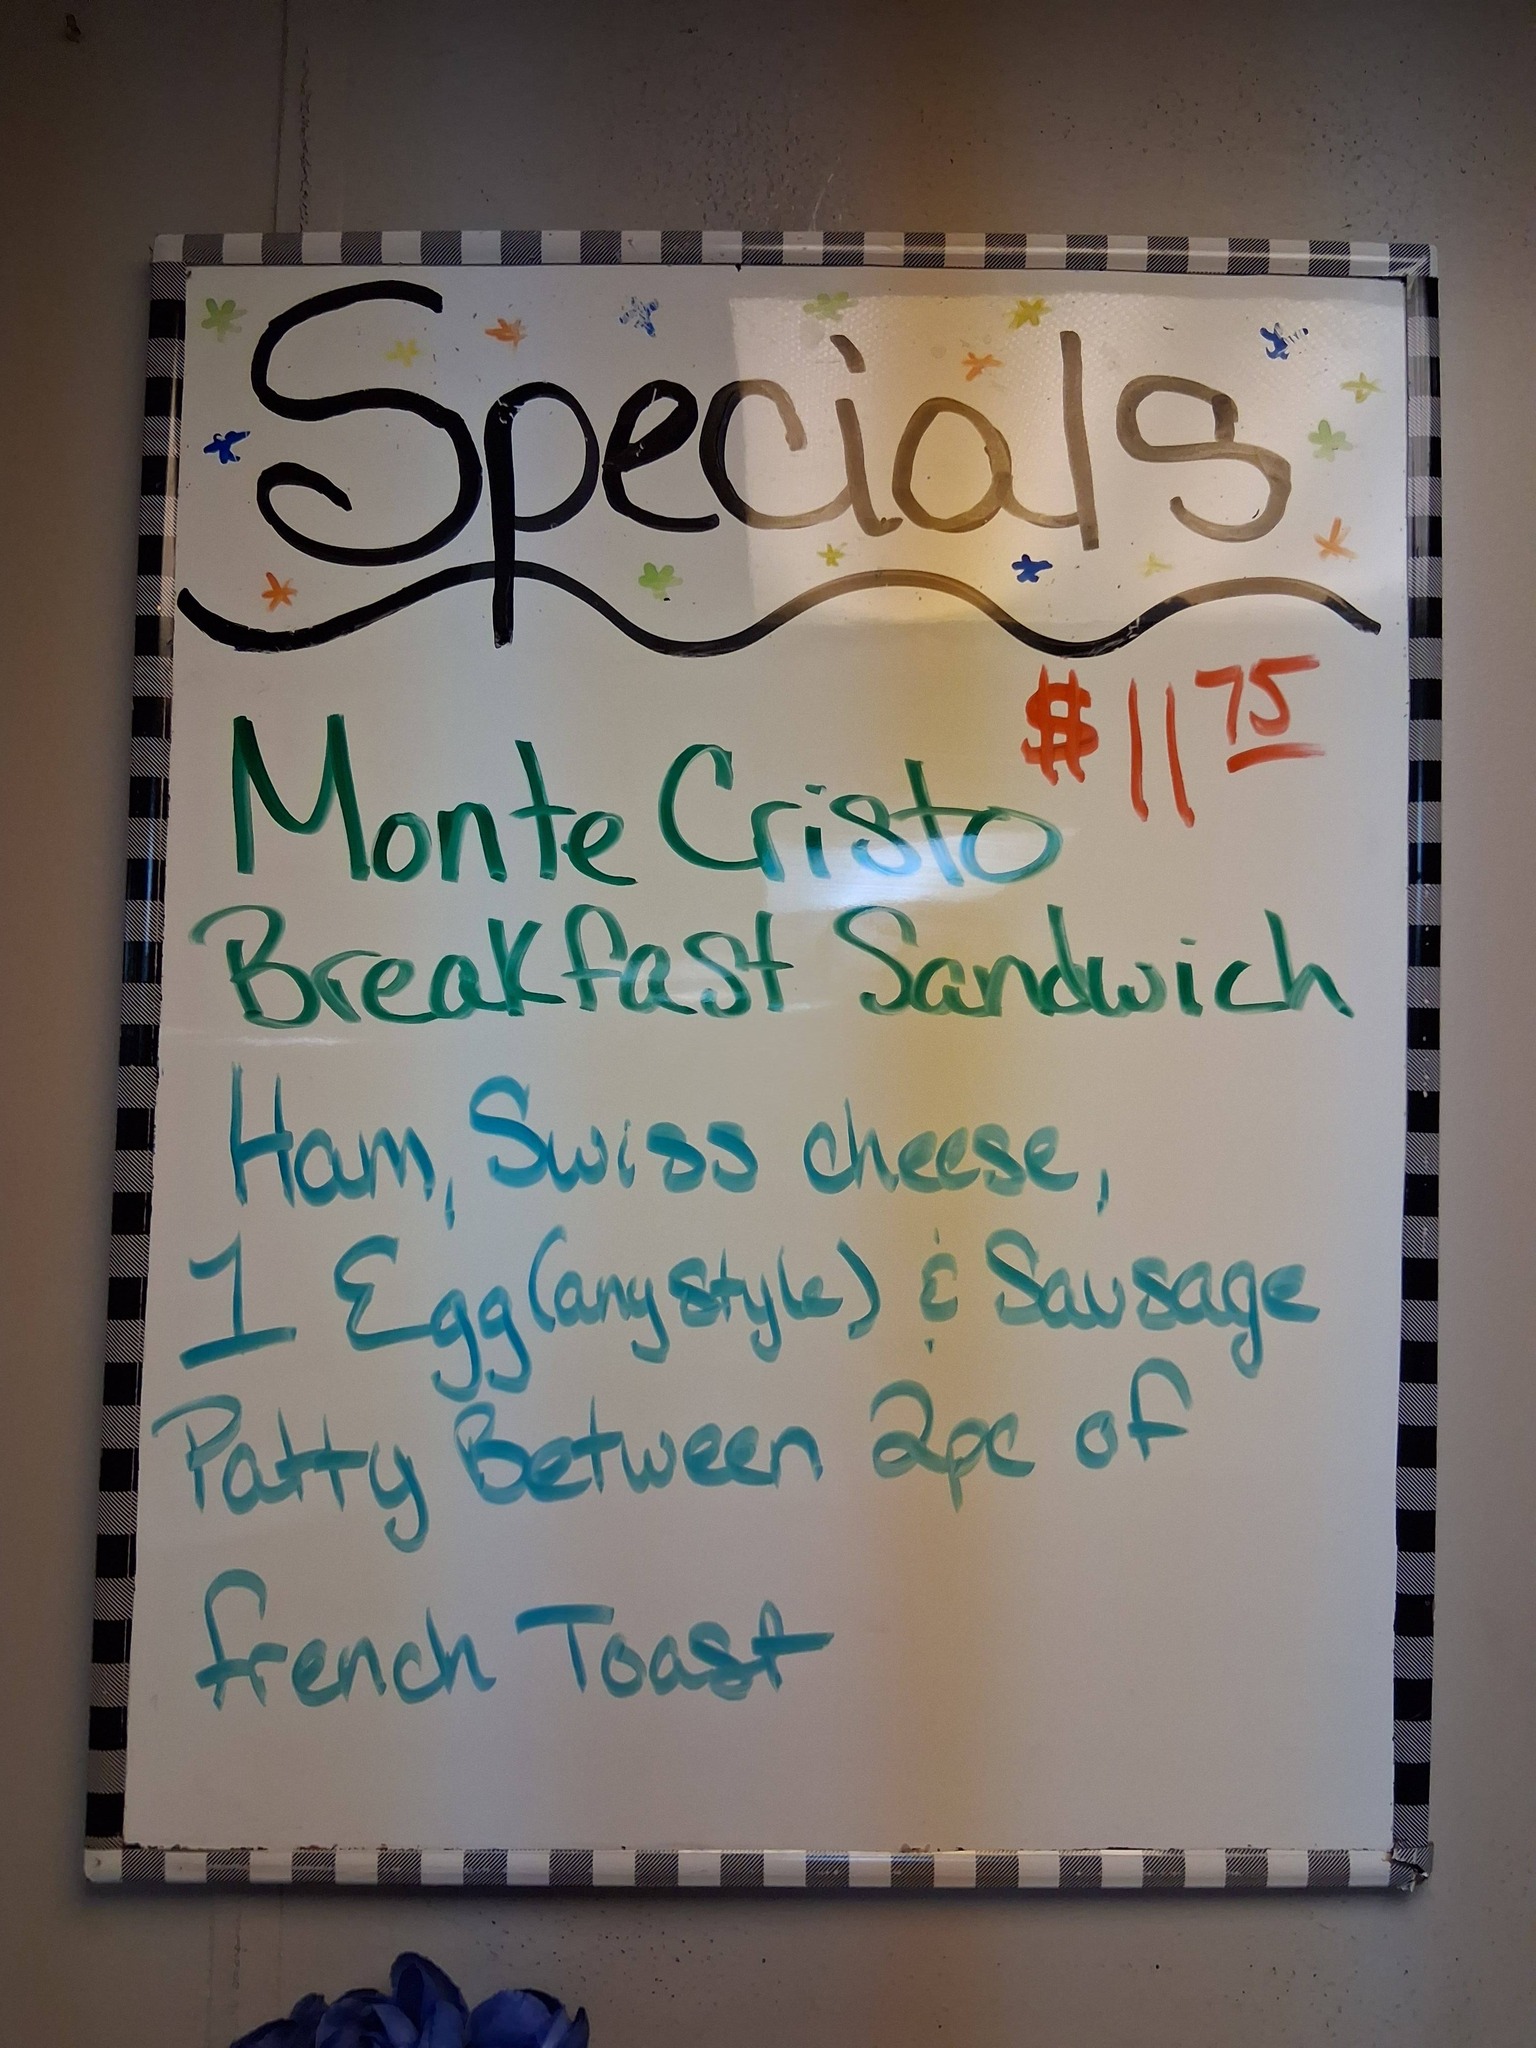 Specials
$11 75
Monte Cristo
Breakfast Sandwich
Ham, Swiss cheese,
1 Egg (any style) & Sausage
Patty Between 2pc of
french Toast